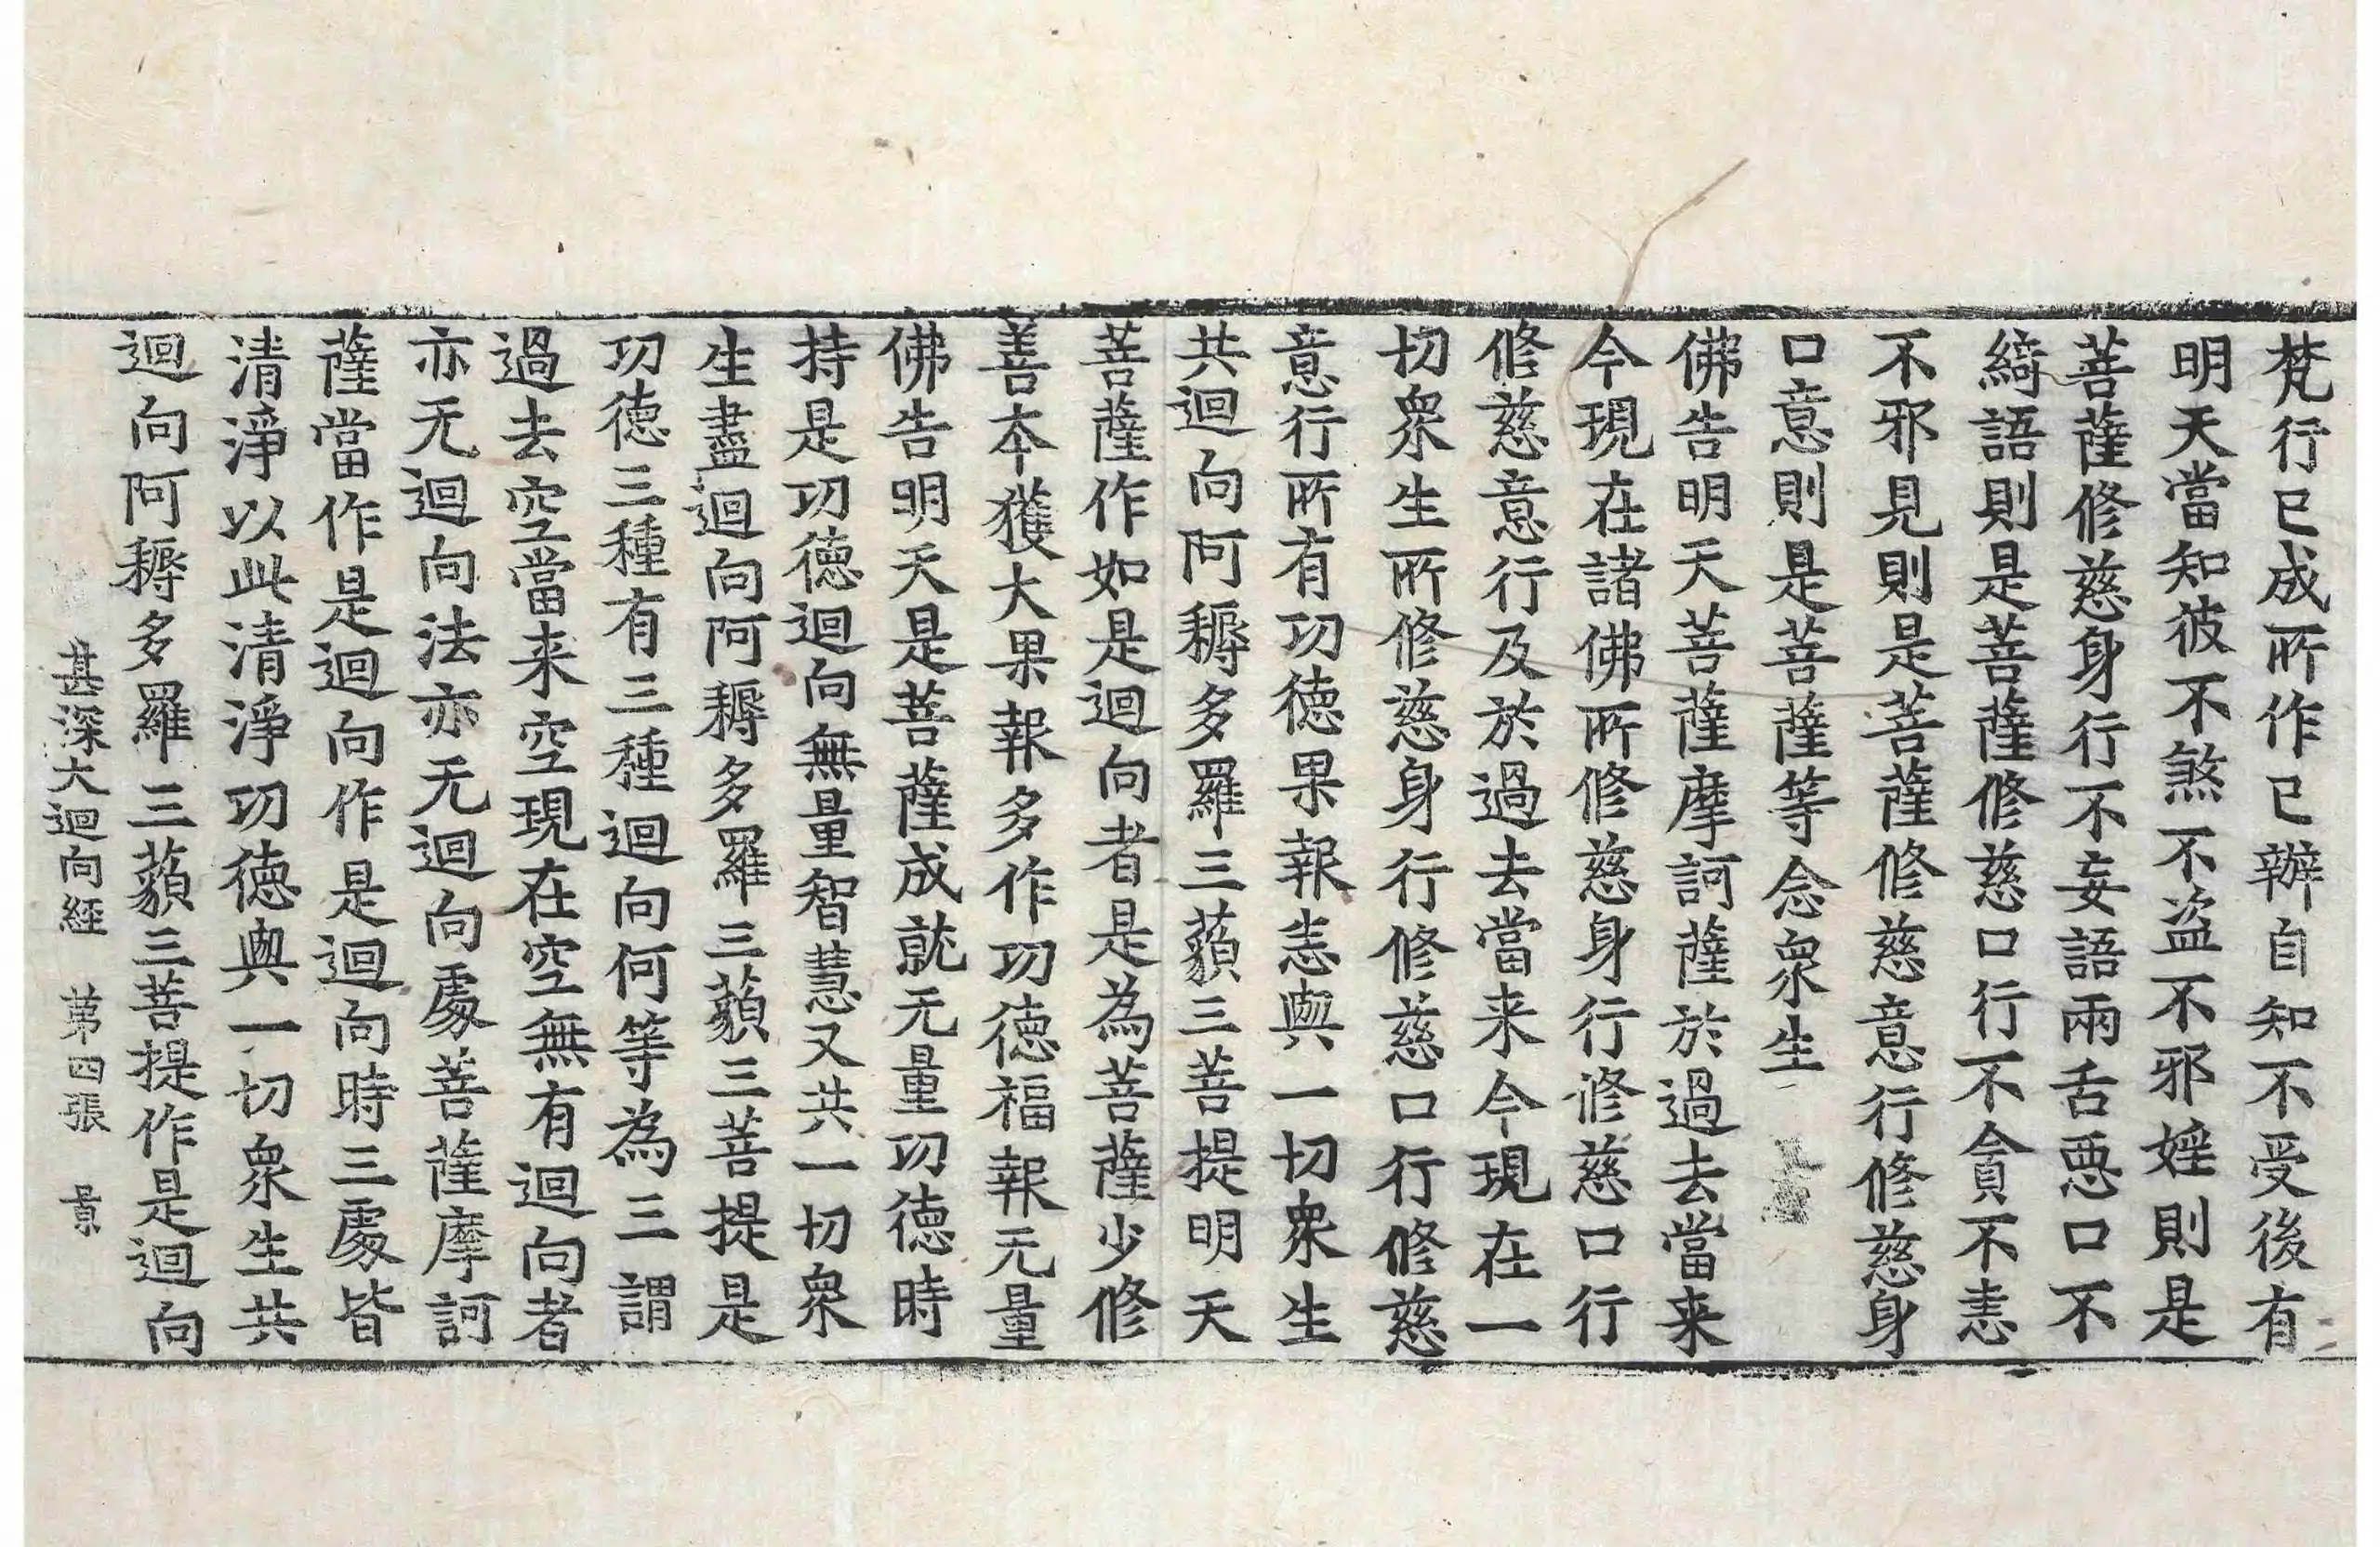 梵行已成所作已辦自知不受後有
明天當知彼不煞不盜不邪婬則是
菩薩修慈身行不妄語兩舌惡口不
綺語則是菩薩修慈口行不貪不恚
不邪見則是菩薩修慈意行修慈身
口意則是菩薩等念衆生
佛告明天菩薩摩訶薩於過去當来
今現在諸佛所修慈身行修慈口行
修慈意行及於過去當来今現在一
切衆生所修慈身行修慈口行修慈
意行所有功德果報恚與一切衆生
共迴向阿耨多羅三藐三菩提明天
菩薩作如是迴向者是為菩薩少修
善本獲大果報多作功德福報无量
佛告明天是菩薩成就无量功德時
持是功德迴向無量智慧又共一切衆
生盡迴向阿耨多羅三藐三菩提是
功德三種有三種迴向何等為三謂
過去空當来空現在空無有迴向者
亦无迴向法亦无迴向處菩薩摩訶
薩當作是迴向作是迴向時三處皆
清淨以此清淨功德與一切衆生共
迴向阿耨多羅三藐三菩提作是迴向
甚深大迴向經 第四張 景